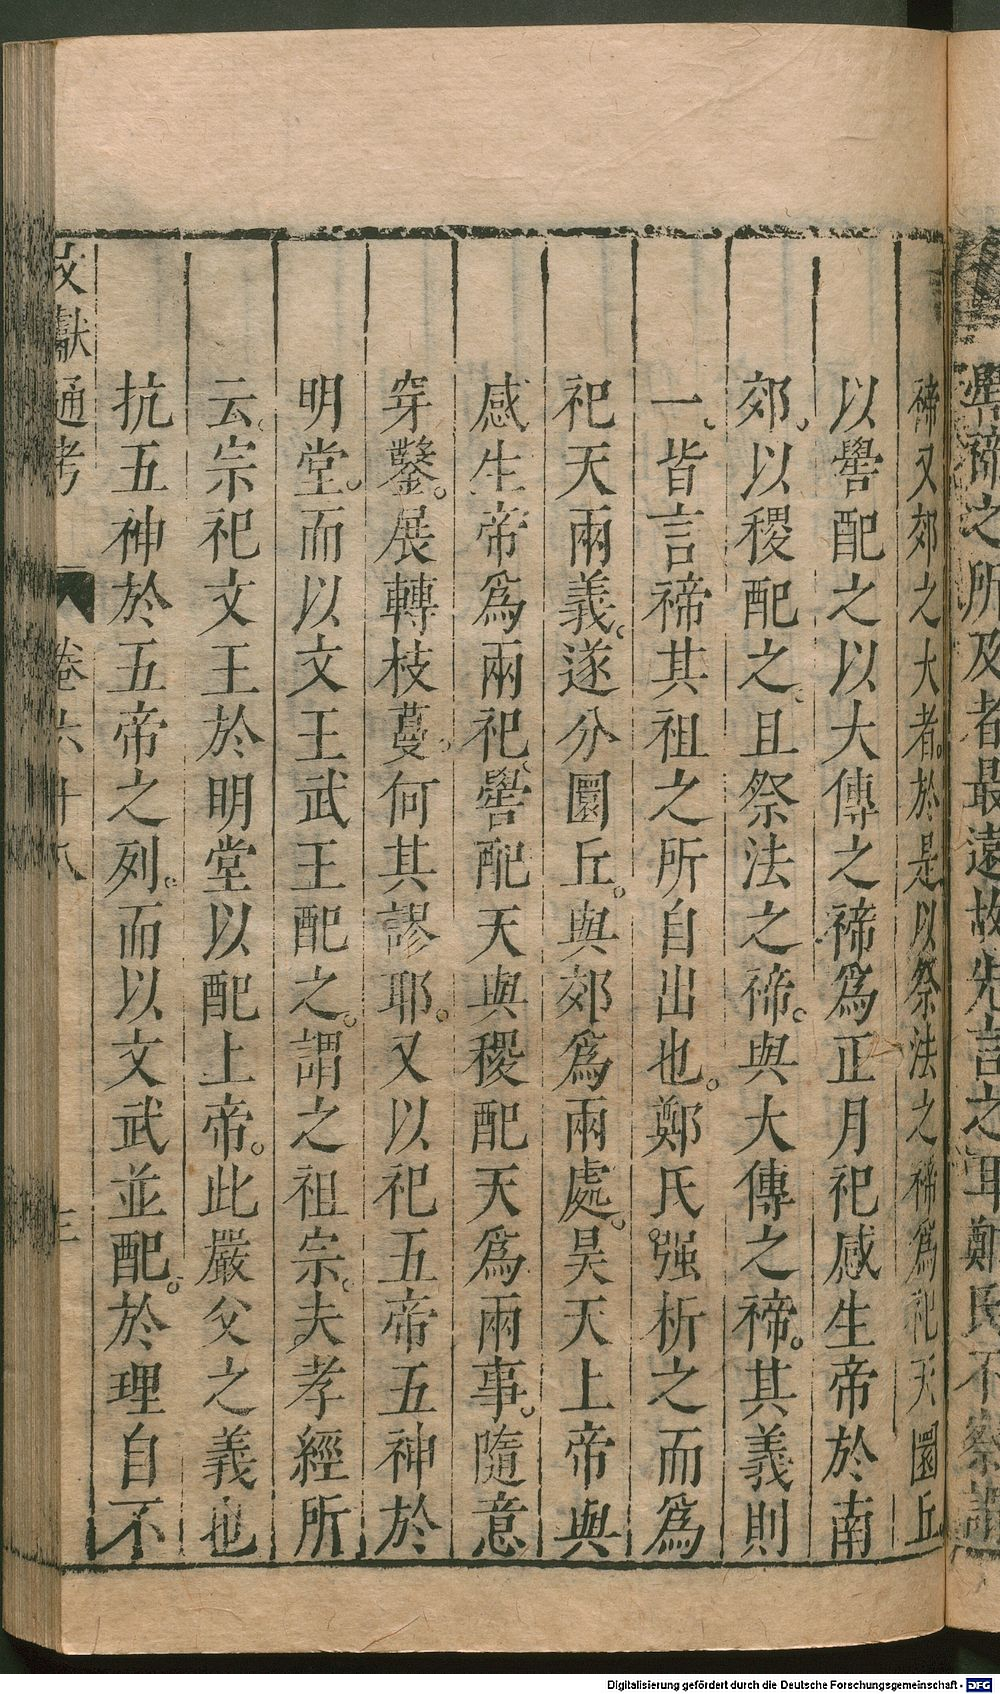 嚳禘之所及者最遠故先言之耳鄭氏不察謂
禘又郊之大者於是以祭法之禘爲祀天圜丘
以嚳配之以大傳之禘爲正月祀感生帝於南
郊以稷配之且祭法之禘與大傳之禘其義則
一皆言禘其祖之所自出也鄭氏强析之而爲
祀天兩義遂分圜丘與郊爲兩處昊天上帝與
感生帝爲兩祀嚳配天與稷配天爲兩事隨意
穿鑿展轉枝蔓何其謬耶又以祀五帝五神於
明堂而以文王武王配之謂之祖宗夫孝經所
云宗祀文王於明堂以配上帝此嚴父之義也
抗五神於五帝之列而以文武並配於理自不
文獻通考 卷六十八 三
Digitalisierung gefördert durch die Deutsche Forschungsgemeinschaft - DFG